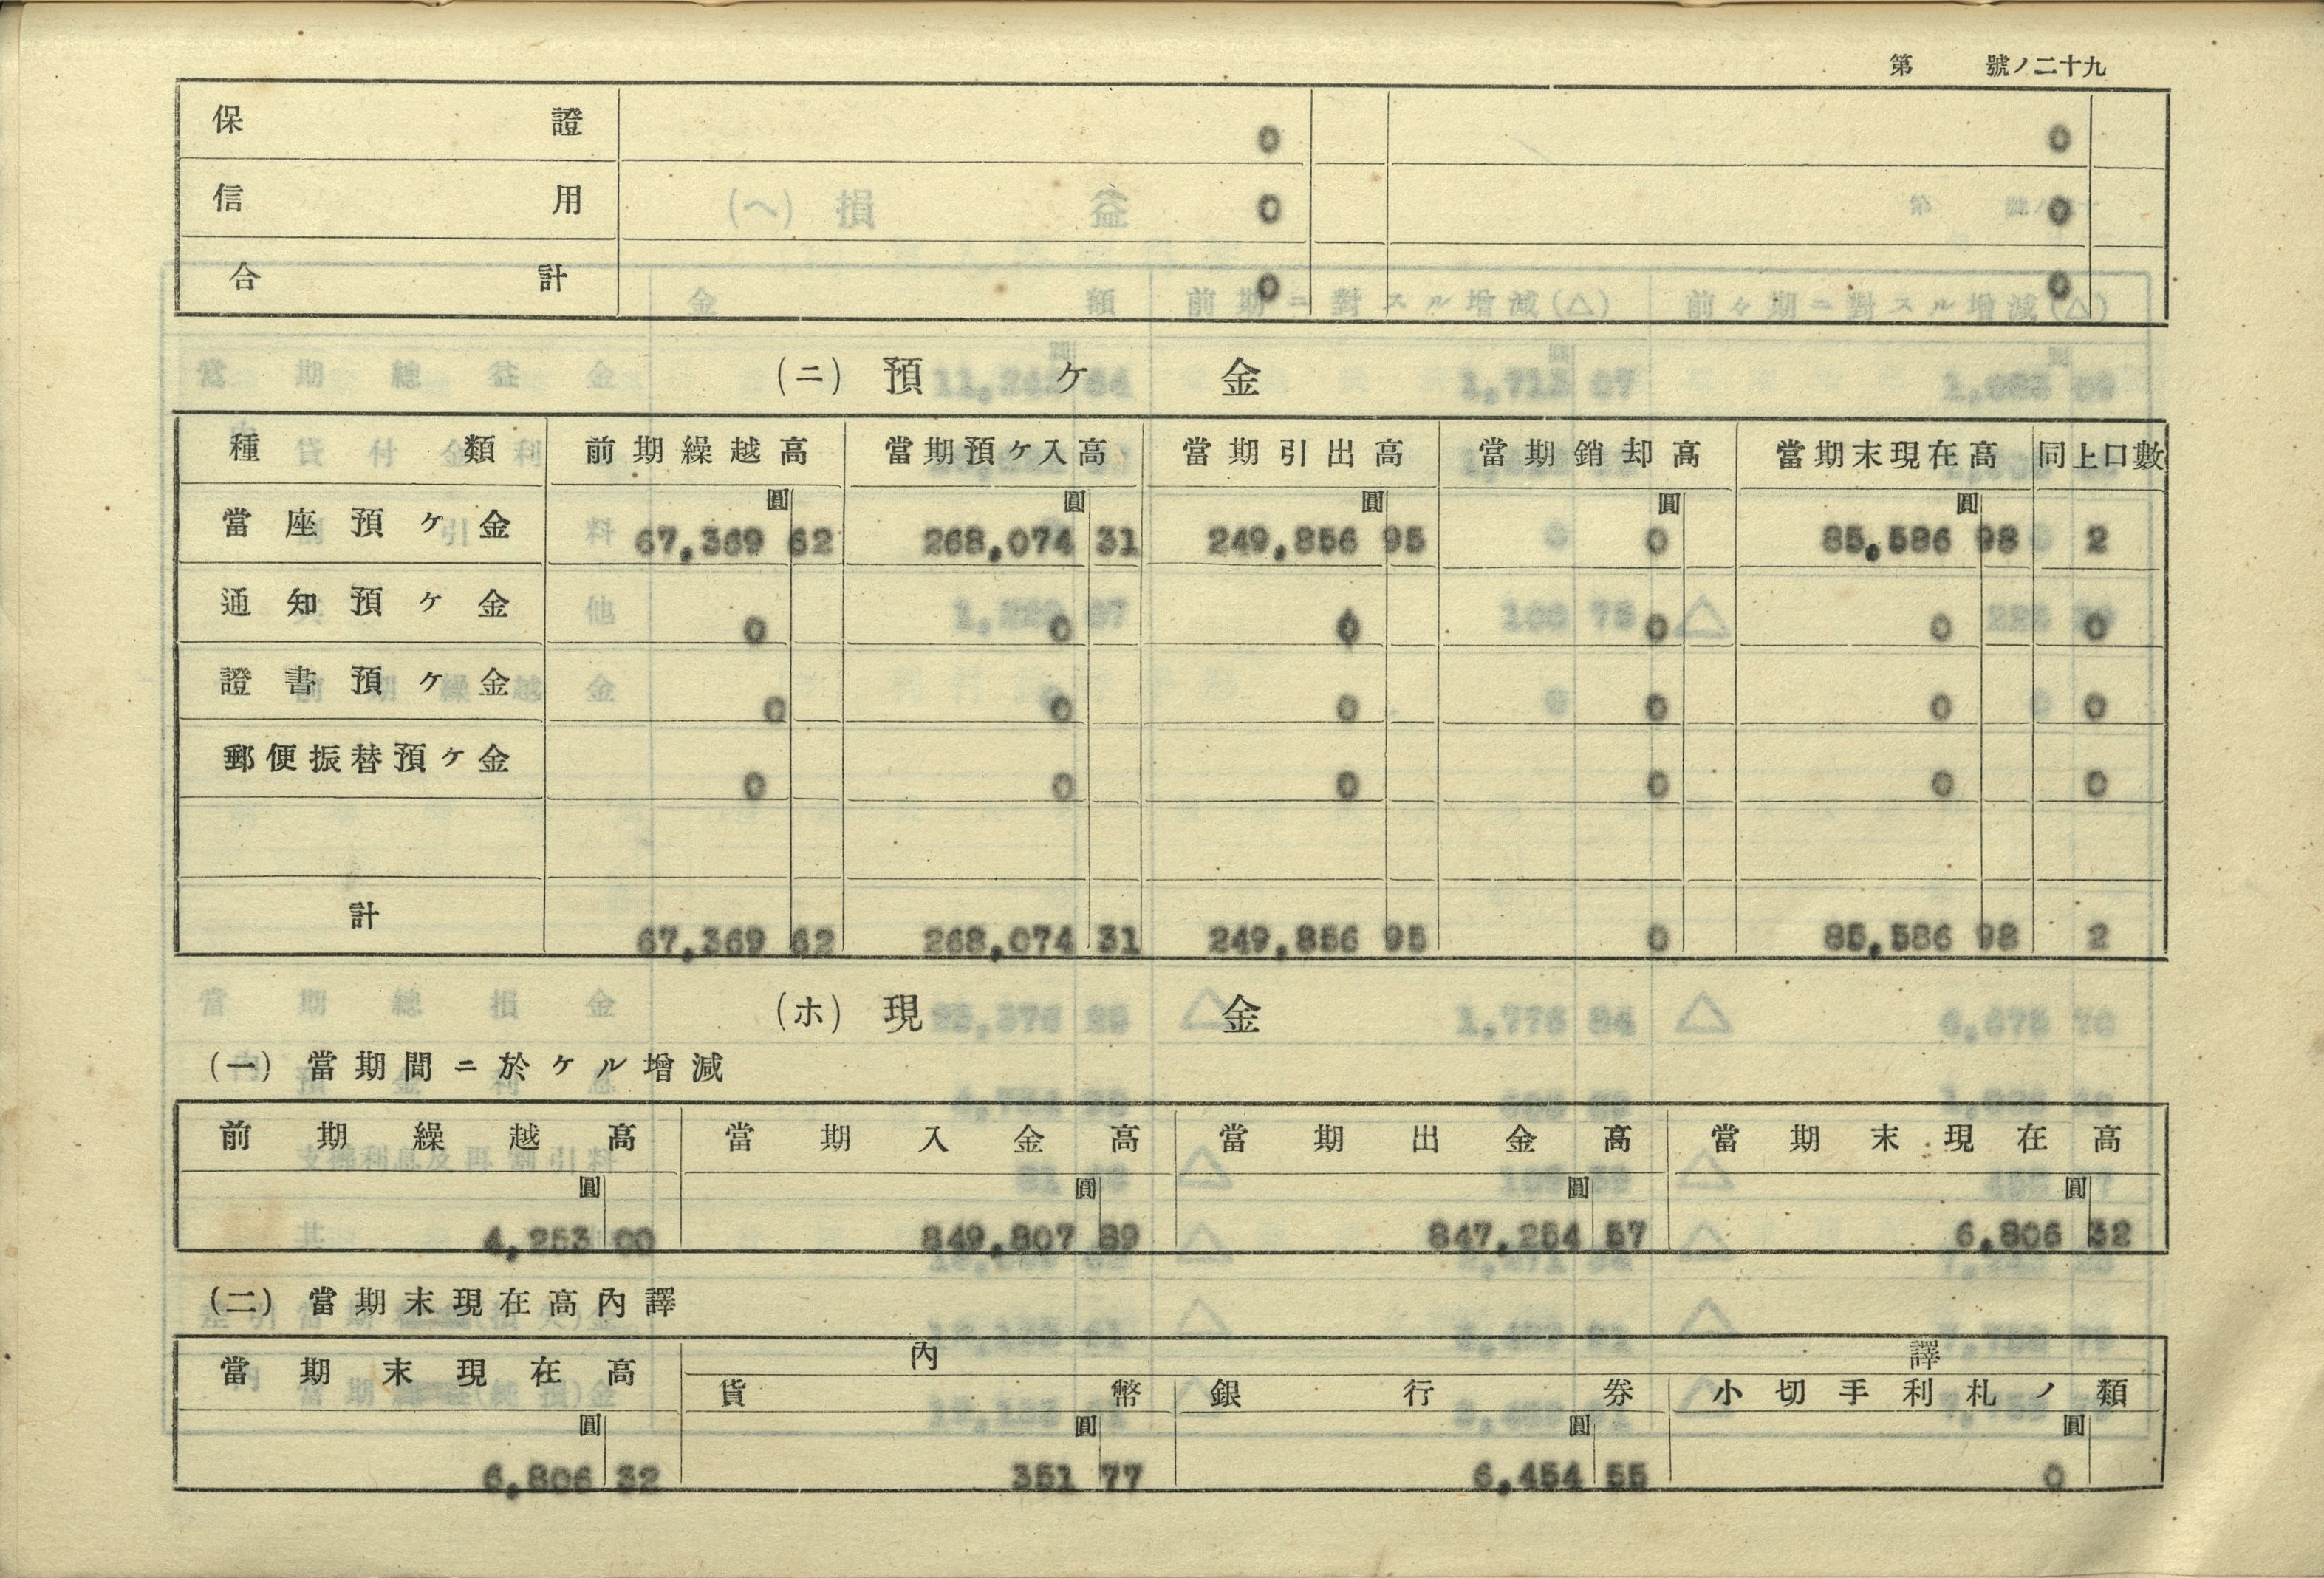 第 號ノ二十九
保證 0 0
信用 0 0
合計 0 0
(ニ) 預ケ金
種類 前期繰越高 當期預ケ入高 當期引出高 當期銷却高 當期末現在高 同上口數
圓 圓 圓 圓 圓
當座預ケ金 67,369 62 268,074 31 249,856 95 0 85,586 98 2
通知預ケ金 0 0 0 0 0 0
證書預ケ金 0 0 0 0 0 0
郵便振替預ケ金 0 0 0 0 0 0
計 67,369 62 268,074 31 249,856 95 0 85,586 98 2
(ホ) 現金
(一) 當期間ニ於ケル增減
前期繰越高 當期入金高 當期出金高 當期末現在高
圓 圓 圓 圓
4,253 00 849,807 89 847,254 57 6,806 32
(二) 當期末現在高內譯
當期末現在高 內譯
貨幣 銀行券 小切手利札ノ類
圓 圓 圓 圓
6,806 32 351 77 6,454 55 0